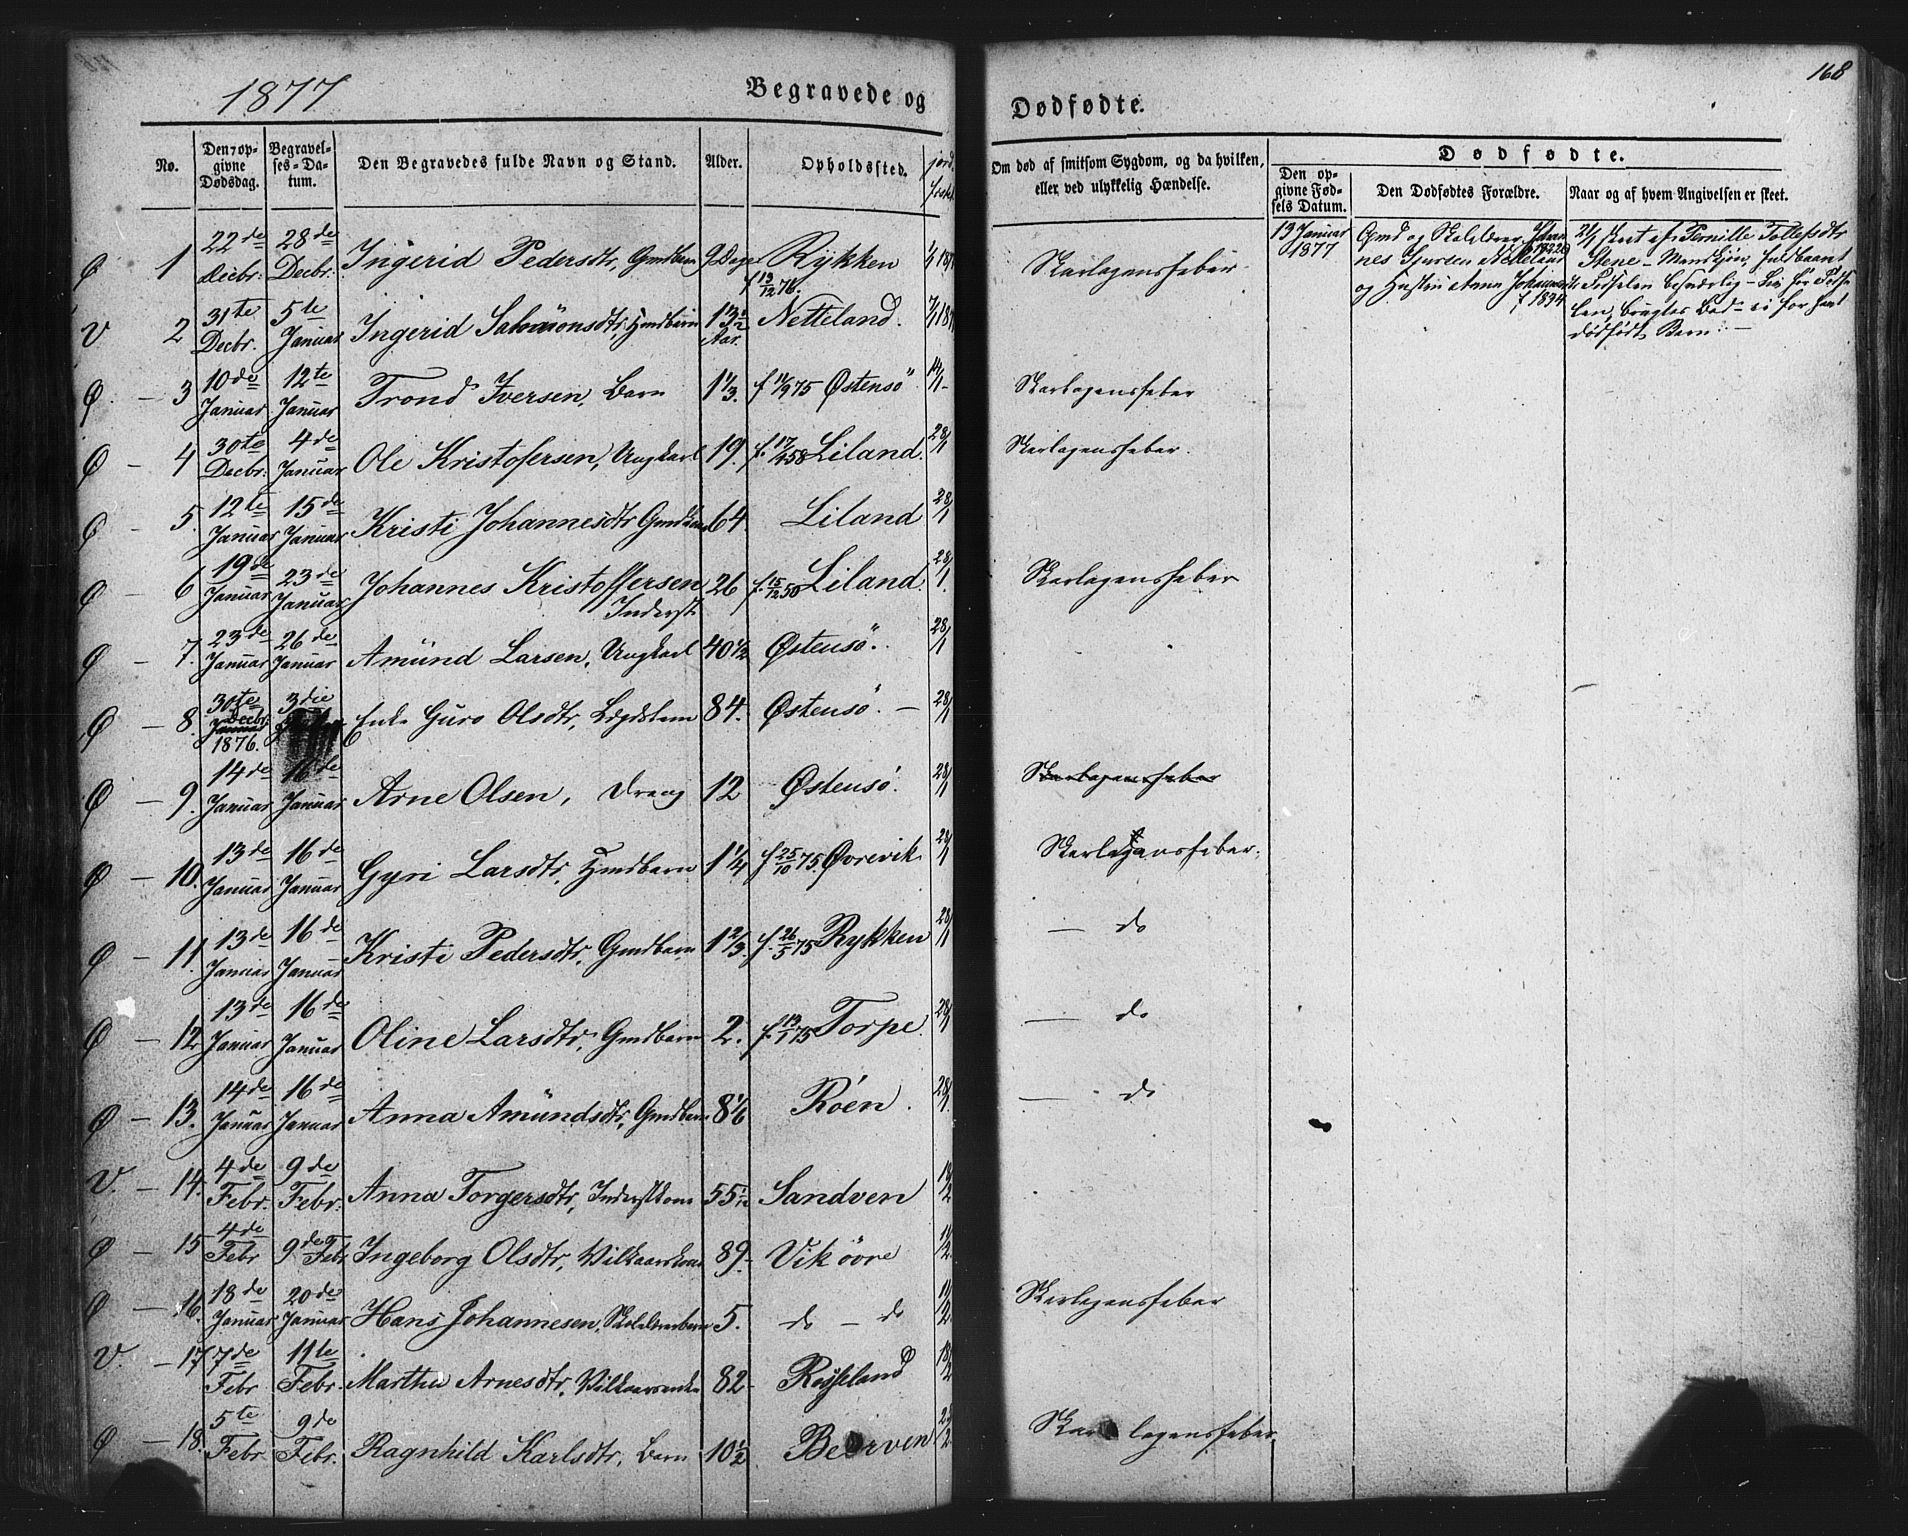 168
1877
Begravede og
Dødfødte.
No.
Den opgivne Dødsdag.
Begravelses-Datum.
Den Begravedes fulde Navn og Stand.
Alder.
Opholdssted.
Om død af smitsom Sygdom, og da hvilken, eller ved ulykkelig Hændelse.
Dødfødte.
Den opgivne Fødsels Datum.
Den Dødfødtes Forældre.
Naar og af hvem Angivelsen er skeet.
Ø 1 22de Decbr. 28de Decbr. Ingerid Pedersdtr, Gmdbarn 9 Dage Rykken f 13/12 76. Skarlagensfeber
13 Januar 1877
og Hustru Anna
Pernille Tollefsdtr
dødfødt Barn. —
V 2 31te Decbr. 5te Januar Ingerid Salomonsdtr, Hmdbarn 13½ Aar. Netteland.
Ø — 3 10de Januar 12te Januar Trond Iversen, Barn 1⅓. f 11/9 75 Østensö 14/1 — Skarlagensfeber
Ø — 4 30te Decbr. 4de Januar Ole Kristofersen, Ungkarl 19. f. 17/4 58 Liland. 28/1 Skarlagensfeber.
Ø — 5. 12te Januar 15de Januar Kristi Johannesdtr 64 Liland 28/1
Ø — 6 19de Januar 23de Januar Johannes Kristoffersen Inderst. 26 f. 15/12 50 Liland. 28/1. Skarlagensfeber
Ø — 7. 23de Januar 26de Januar Amund Larsen, Ungkarl 40½ Østensö. 28/1
Ø — 8. 30te Decbr. 1876. 3die Enke Guro Olsdtr, Lægdslem 84. Østensö. — 28/1
Ø — 9. 14de Januar 16de Januar Arne Olsen, Dreng 12 Østensö. 28/1 Skarlagensfeber
Ø — 10. 13de Januar 16de Januar Gyri Larsdtr, Hmdbarn 1¼ f 25/10 75. Øvrevik 28/1 Skarlagensfeber.
Ø — 11. 13de Januar 16de Januar Kristi Pedersdtr, Gmdbarn 1⅔. f. 26/5 75 Rykken 28/1 — do
Ø — 12. 13de Januar 16de Januar Oline Larsdtr, Gmdbarn 2. f. 13/1 75 Torpe. 28/1 — do
Ø — 13. 14de Januar 16de Januar Anna Amundsdtr, Gmdbarn 8⅙ Röen. 28/1. — do
V. — 14. 4de Febr. 9de Febr. Anna Torgersdtr, Inderstkone 55 1/12 Sandven 18/2
Ø — 15 4de Febr 9de Febr Ingeborg Olsdtr, 89. Vik övre 11/2.
Ø — 16. 18de Januar 20de Januar Hans Johannesen, 5. do — do 11/2 Skarlagensfeber
V. — 17 7de Febr 11te Febr. Martha Arnesdtr, Vilkaarsenke 82 18/2
Ø — 18. 5te Febr. 9de Febr. Ragnhild Karlsdtr, Barn 10½ Skarlagensfeber.